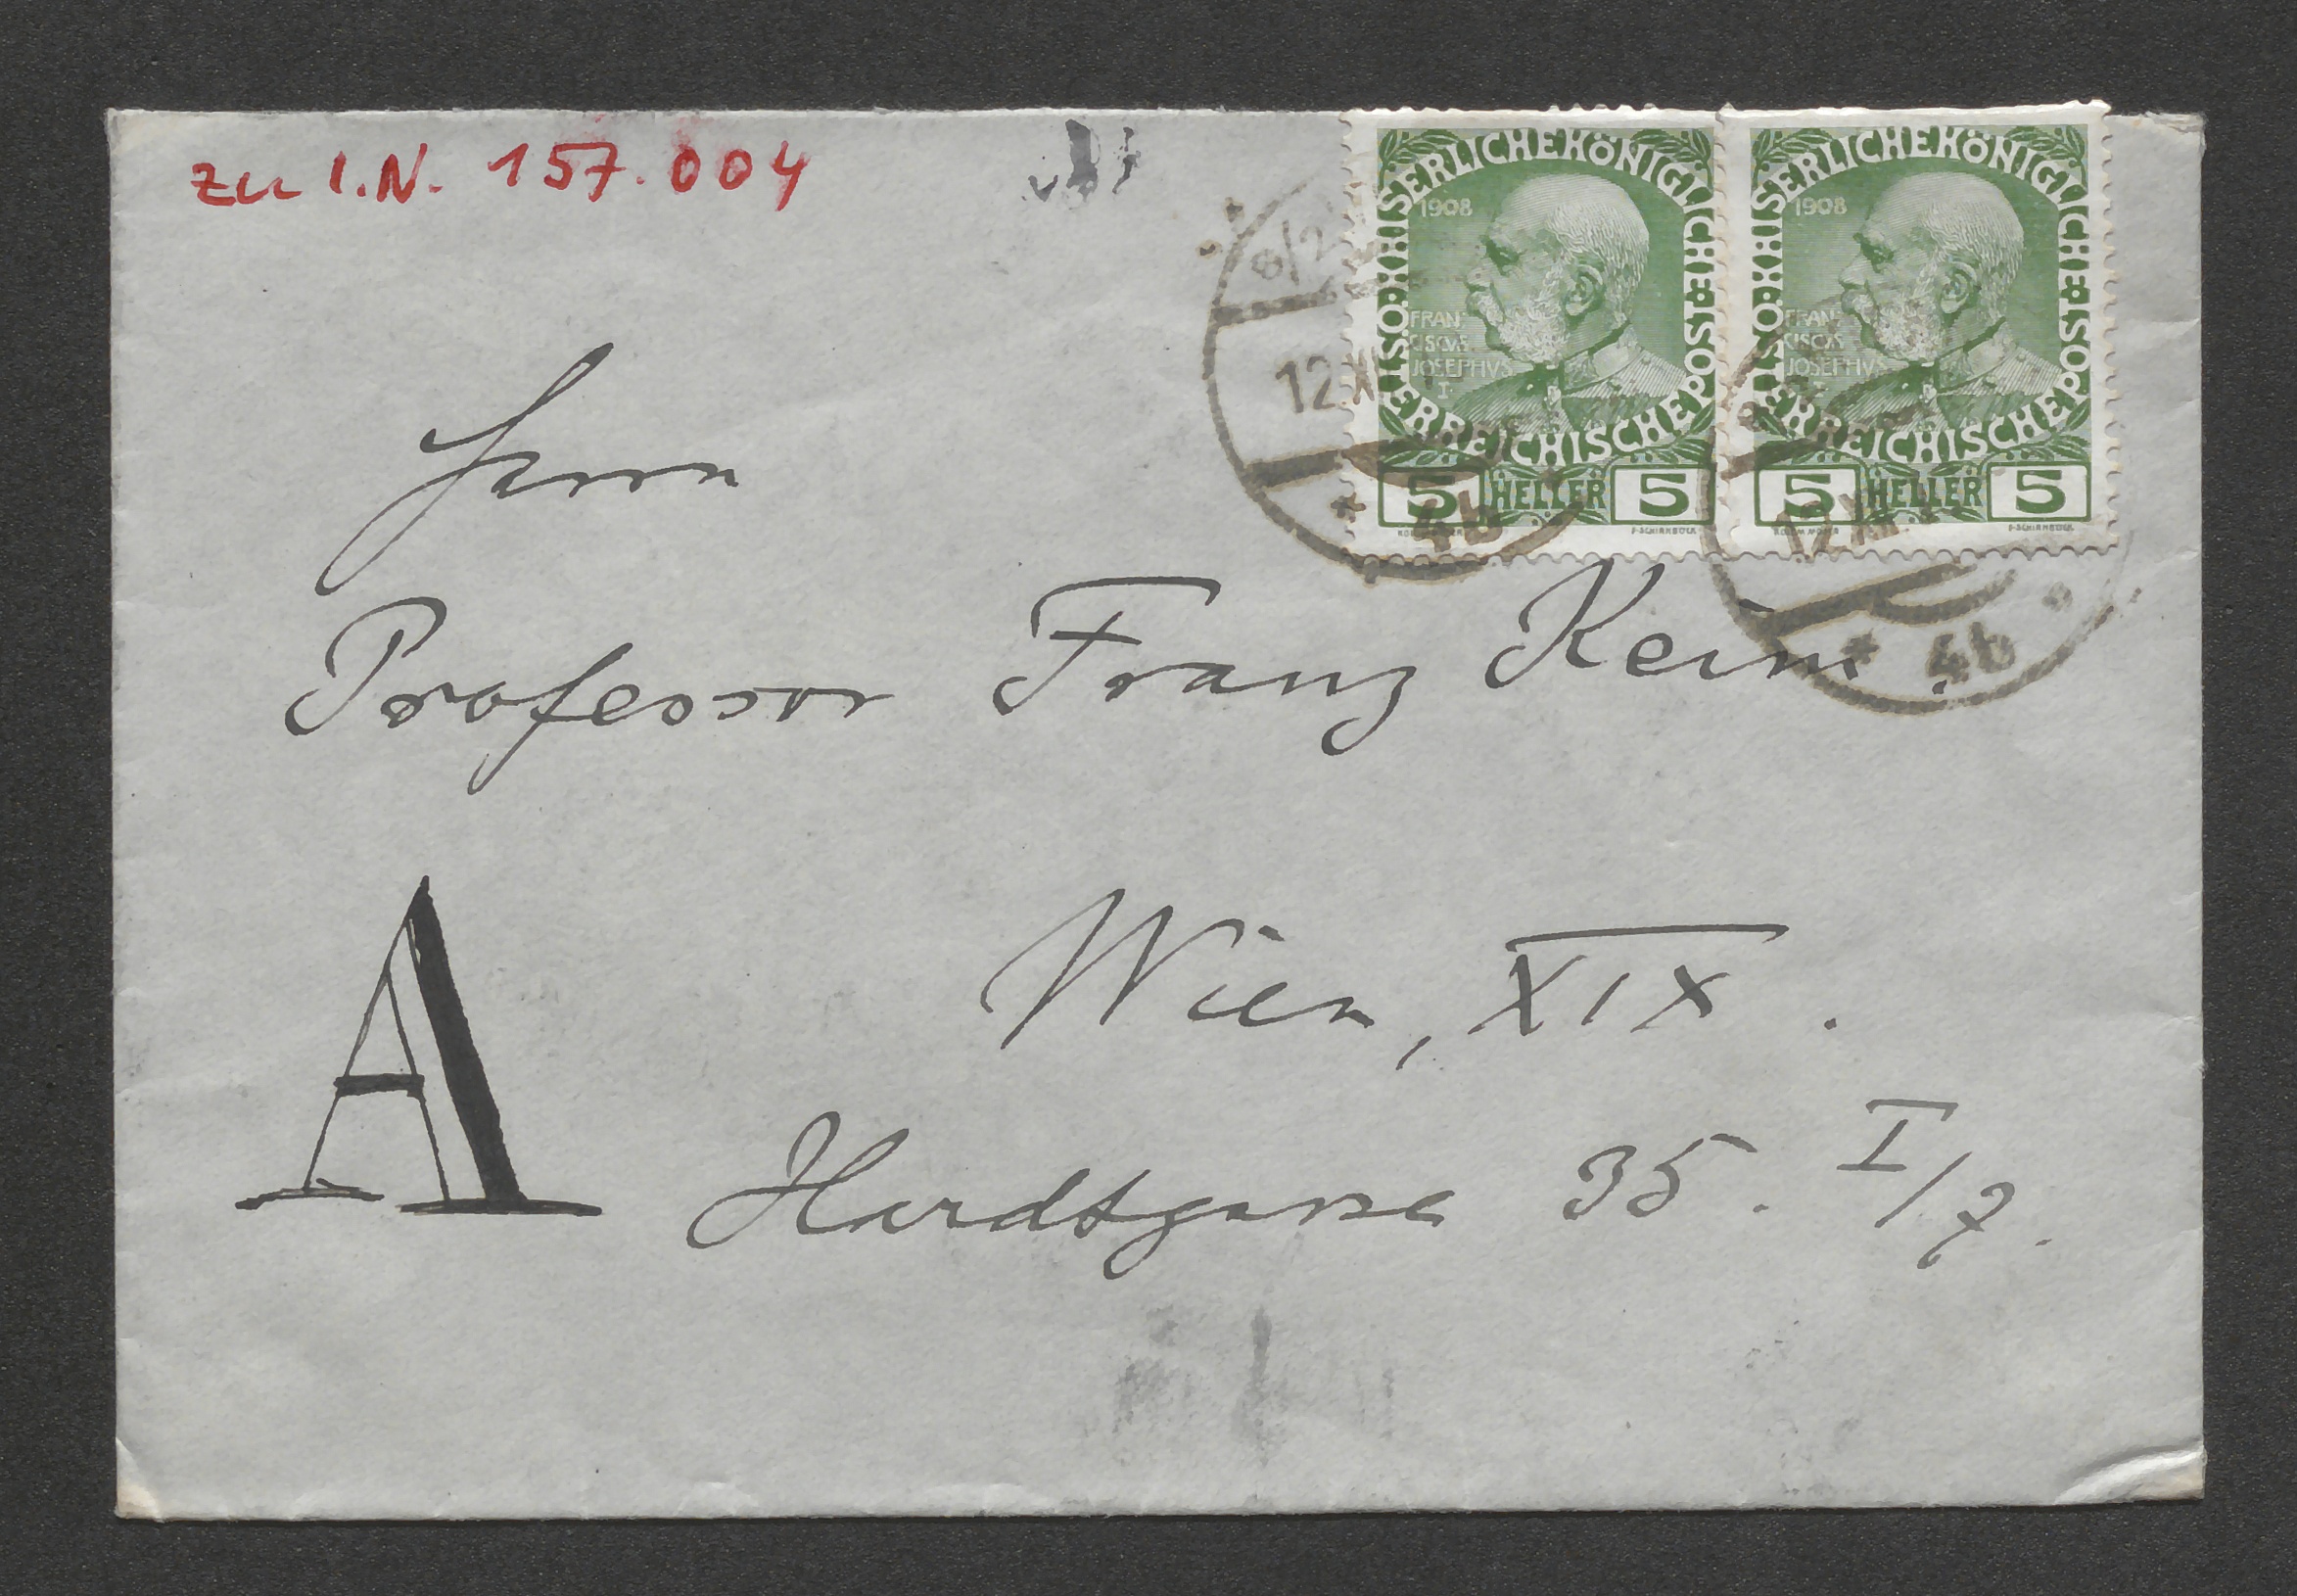 zu I.N. 157.004
KAISERLICHE KÖNIGLICHE POST ÖSTERREICHISCHE
1908
FRAN
CISCVS
JOSEPHVS
I
5 HELLER 5
KAISERLICHE KÖNIGLICHE POST ÖSTERREICHISCHE
1908
FRAN
CISCVS
JOSEPHVS
I
5 HELLER 5
12.XI
* 4b
* 4b
Herrn
Professor Franz Keim.
Wien, XIX.
A
Hardtgasse 35. I/7.